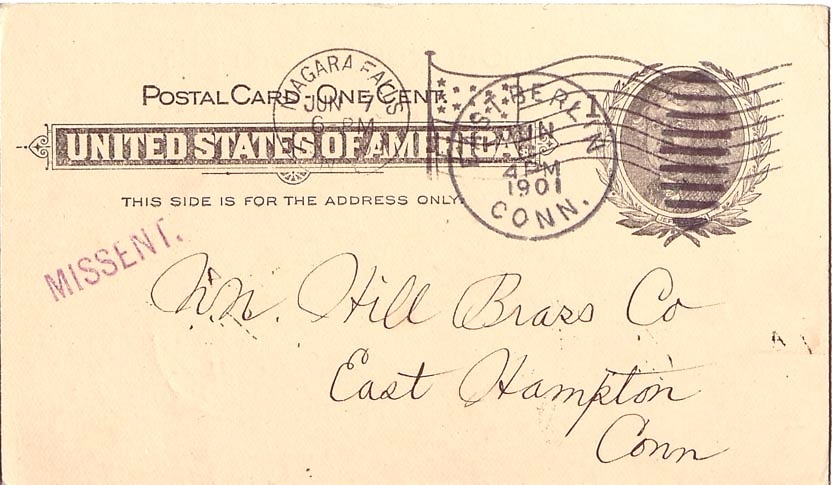 NIAGARA FALLS
JUN 7
6-PM
POSTAL CARD-ONE CENT.
UNITED STATES OF AMERICA
THIS SIDE IS FOR THE ADDRESS ONLY.
1
EAST BERLIN
JUN
4 PM
1901
CONN.
MISSENT.
N.N. Hill Brass Co
East Hampton
Conn